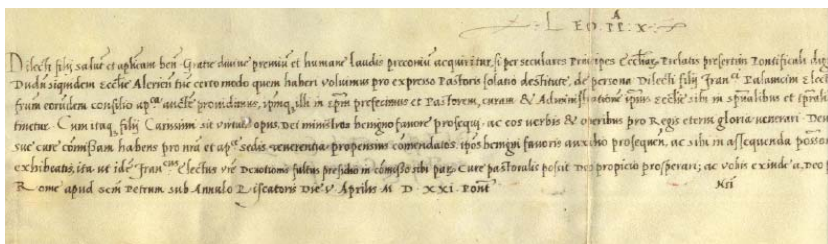 LEO PP X
Dilecti filij salutẽ et aplicam ben. Gratie divine premiũ et humane laudis preconiũ acquiritur, si per seculares Principes Eccliar Prelatis presertim Pontificali dig
Dudũ siquidem Ecclie Alerien tũc certo modo quem haberi volumus pro expresso Pastoris solatio destitute, de persona Dilecti filij Fran^ci Palavicini Elect
frum eorundem consilio ap^ca aucte providimus, ipmq illi in Epm prefecimus et Pastorem, curam & Administrationẽ ipius Ecclie sibi in spũalibus et tp̃ralib
tinetur. Cum itaq filij Carissimi sit virtutis opus, Dei ministros benigno favore prosequi, ac eos verbis & operibus pro Regis eterni gloria venerari. Dev
sue cure cõmissam habens pro nra et ap^ce sedis reverentia propensius comendatos ipos benigni favoris auxilio prosequen, ac sibi in assequenda posses
exhibeatis, ita ut idẽ Fran^cus Electus vrẽ Devotionis fultus presidio in cõmisso sibi pas Cure pastoralis possit Deo propicio prosperari; ac vobis exinde a Deo p
Rome apud Scm Petrum sub Annulo Piscatoris Die V Aprilis M D XXI Pont Nri